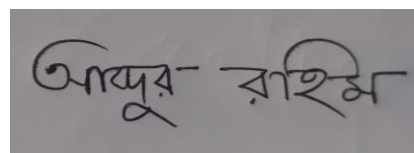 আব্দুর রহিম